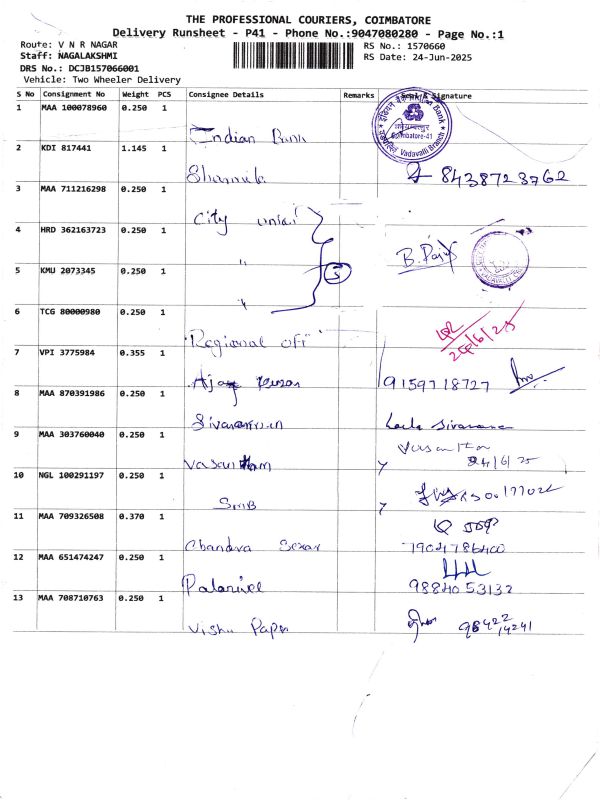 THE PROFESSIONAL COURIERS, COIMBATORE
Delivery Runsheet - P41 - Phone No.:9047080280 - Page No.:1
Route: V N R NAGAR
Staff: NAGALAKSHMI
DRS No.: DCJB157066001
Vehicle: Two Wheeler Delivery
RS No.: 1570660
RS Date: 24-Jun-2025
S No Consignment No Weight PCS Consignee Details Remarks Seal & Signature
1 MAA 100078960 0.250 1 Indian Bank
Coimbatore-41
Vadavalli Branch
2 KDI 817441 1.145 1 Sharmila 8438723762
3 MAA 711216298 0.250 1 City union
4 HRD 362163723 0.250 1 "
5 KMU 2073345 0.250 1 "
3
6 TCG 80000980 0.250 1 Regional off
7 VPI 3775984 0.355 1 Ajay 9159718727
8 MAA 870391986 0.250 1
9 MAA 303760040 0.250 1 Vasantham
24/6/25
10 NGL 100291197 0.250 1 SMB
11 MAA 709326508 0.370 1 Chandra Sekar
7904786400
12 MAA 651474247 0.250 1 Palanivel
9884053132
13 MAA 708710763 0.250 1 Vishu Paper
98422
14241